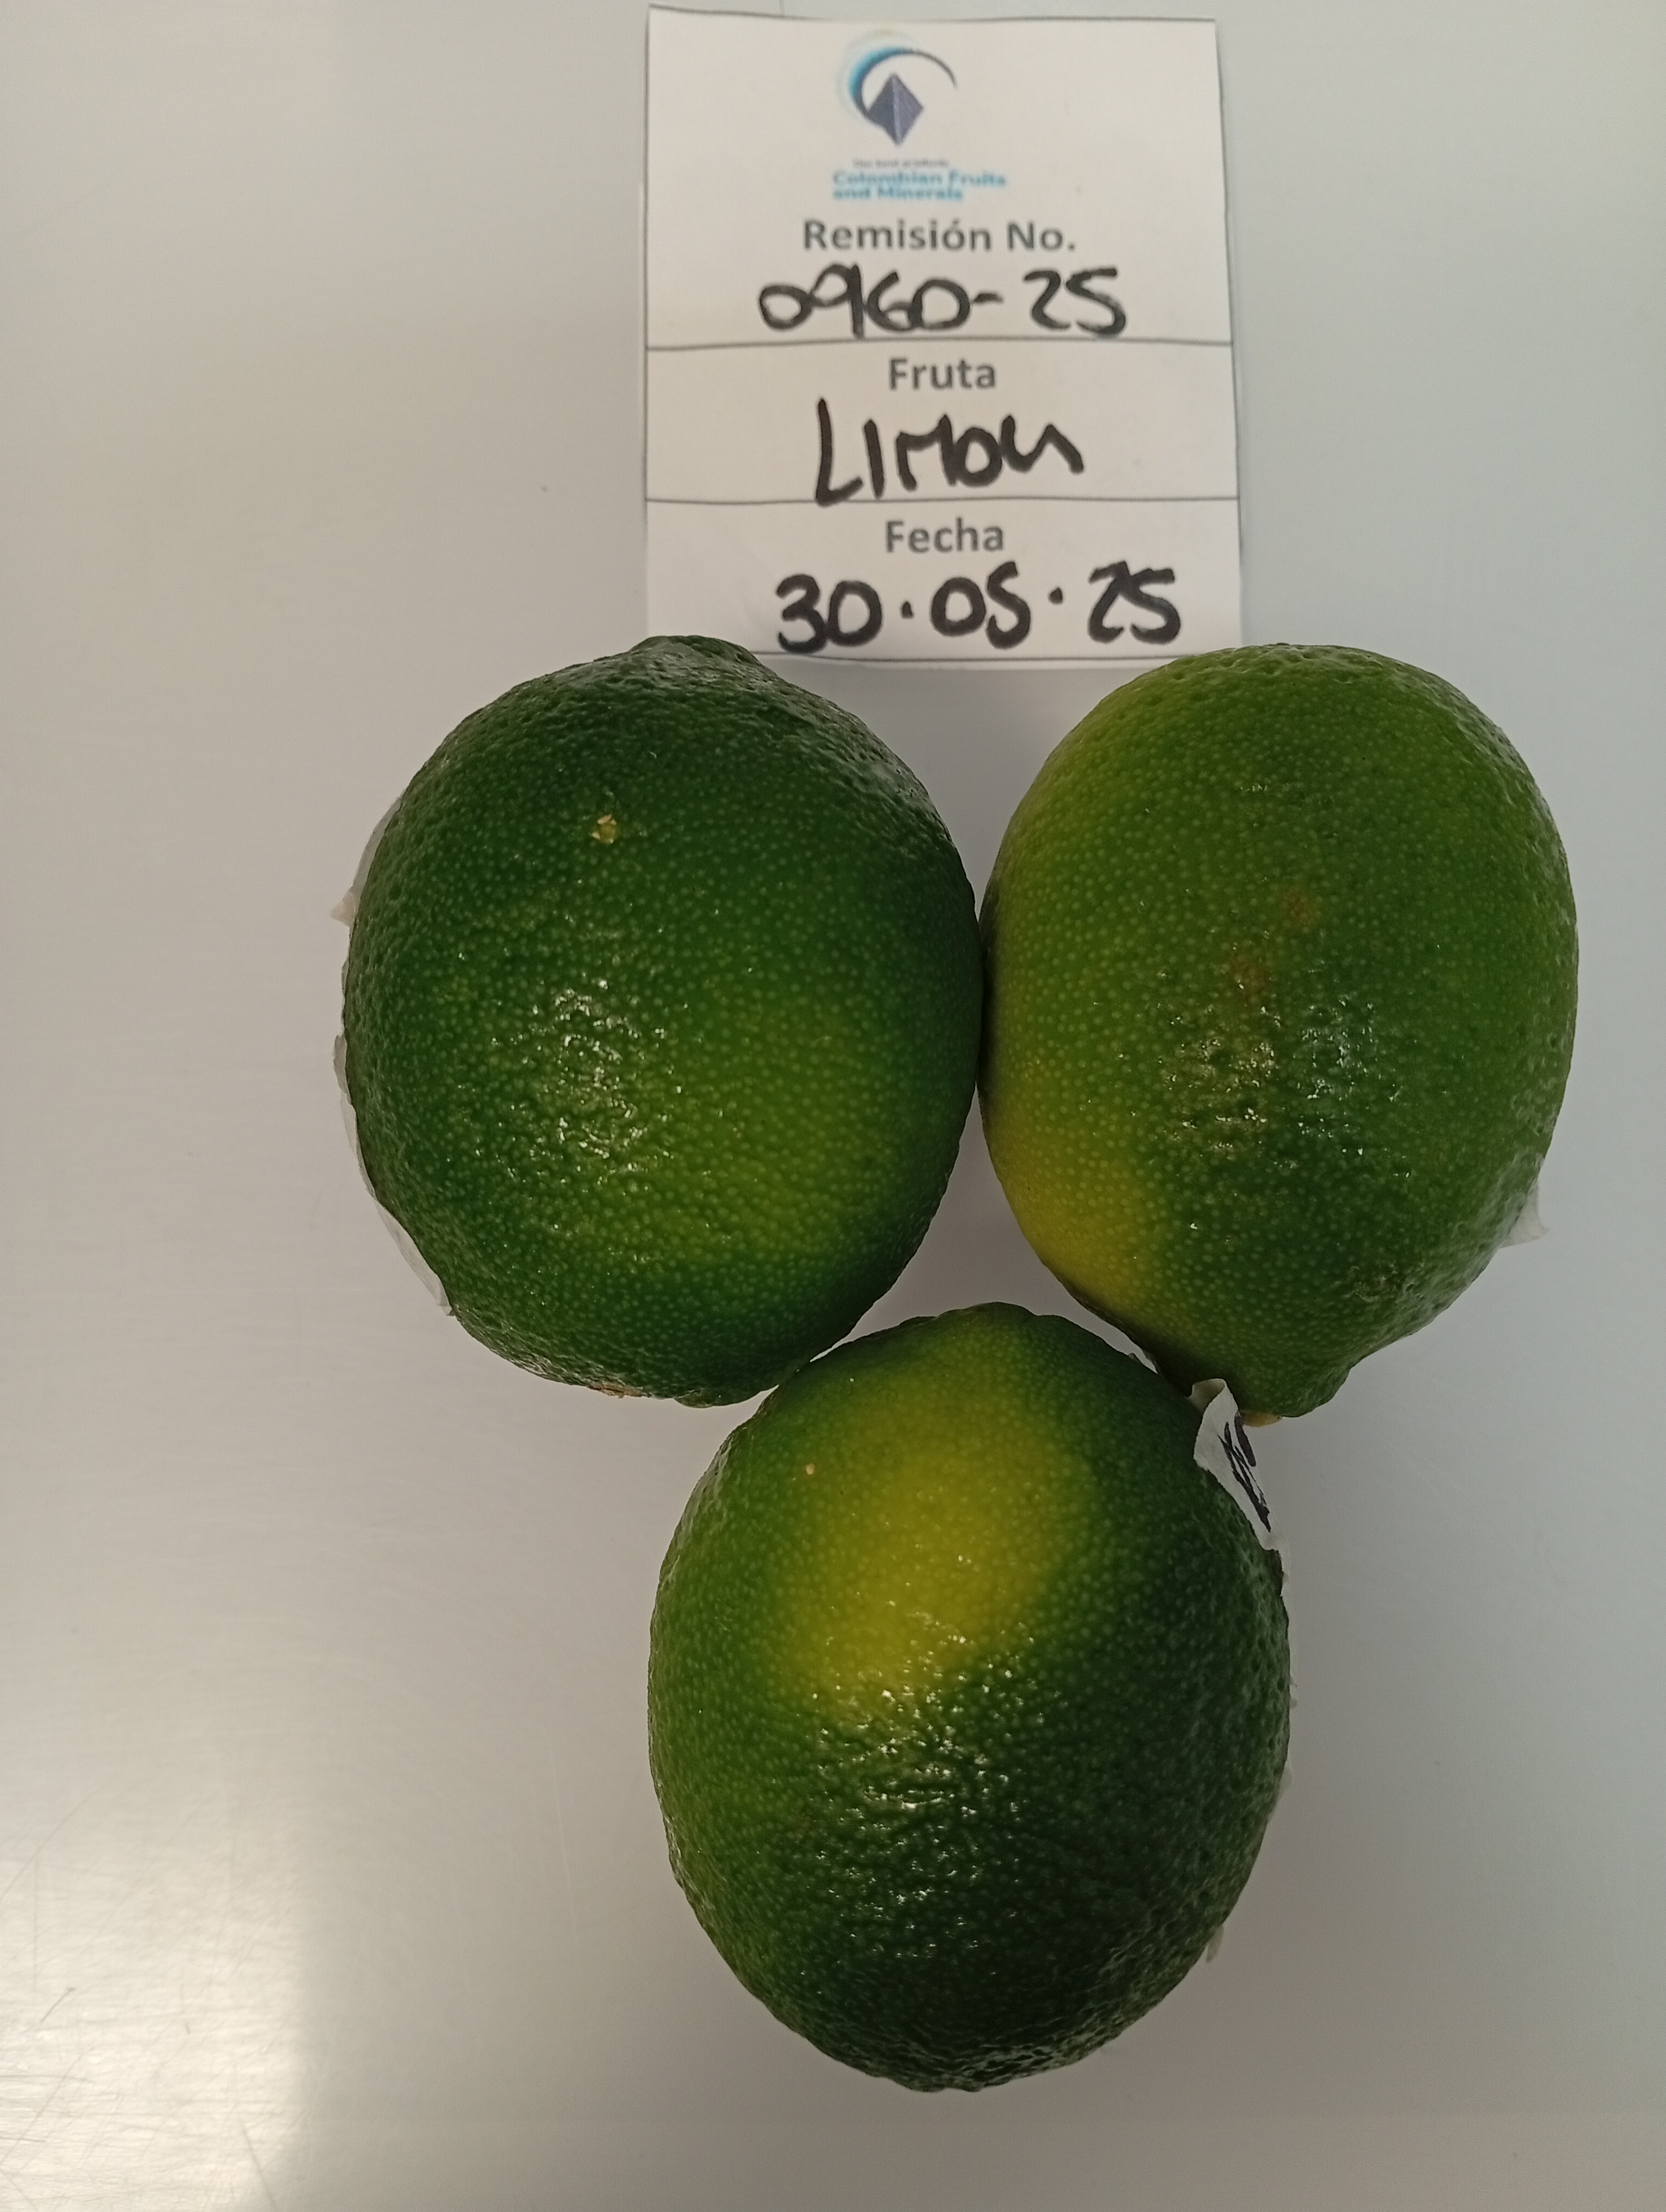 Colombian Fruits
and Minerals
Remisión No.
0960-25
Fruta
LIMON
Fecha
30.05.25